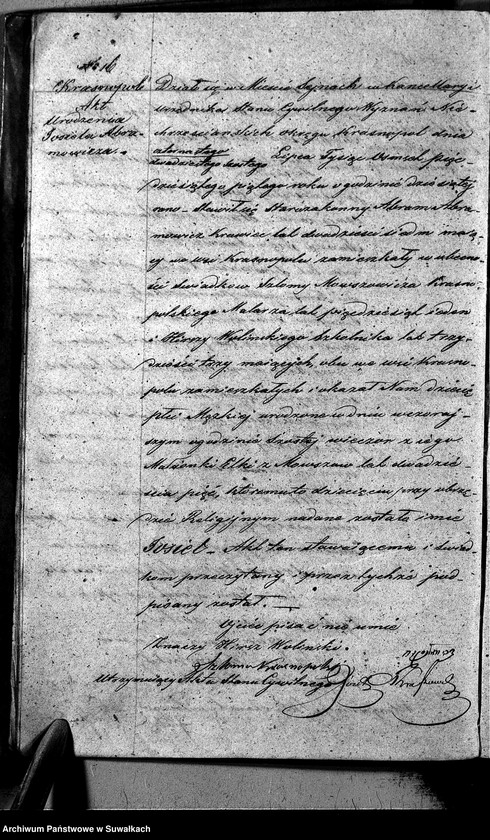 № 16
Krasnopol
Akt
Urodzenia
Josiela Abra-
mowicza.
Dział się w Mieście Sejnach w Kancellaryi
urzędnika Stanu Cywilnego Wyznań Nie-
chrześciańskich okręgu Krasnopol dnia
dwudziestego szóstego Lipca Tysiąc Ośmset pięć-
dziesiątego piątego roku o godzinie dziesiątej
rano. Stawił się Starozakonny Abram Abra-
mowicz Krawiec lat dwadzieścia siedm mają-
cy we wsi Krasnopolu zamieszkały w obecno-
ści świadków Szlomy Mowszowicza Krasno-
polskiego Malarza lat pięćdziesiąt i jeden
i Hirszy Wolinskiego Szkolnika lat trzy-
dzieści trzy mających, obu we wsi Krasno-
polu zamieszkałych i okazał Nam dziecię
płci Męzkiej urodzone w dniu wczoraj-
szym o godzinie szóstej wieczor z jego
Małżonki Elki z Mowszow lat dwadzie-
ścia pięć, któremu to dziecięciu przy obrzę-
dzie Religijnym nadane zostało imie
Josiel. Akt ten stawającemu i świad-
kom przeczytany i przez tychże pod-
pisany został.
Ojciec pisać nie umie
Hirsz Wolinski.
Szloma Krasnopolski
Utrzymujący Akta Stanu Cywilnego
Archiwum Państwowe w Suwałkach